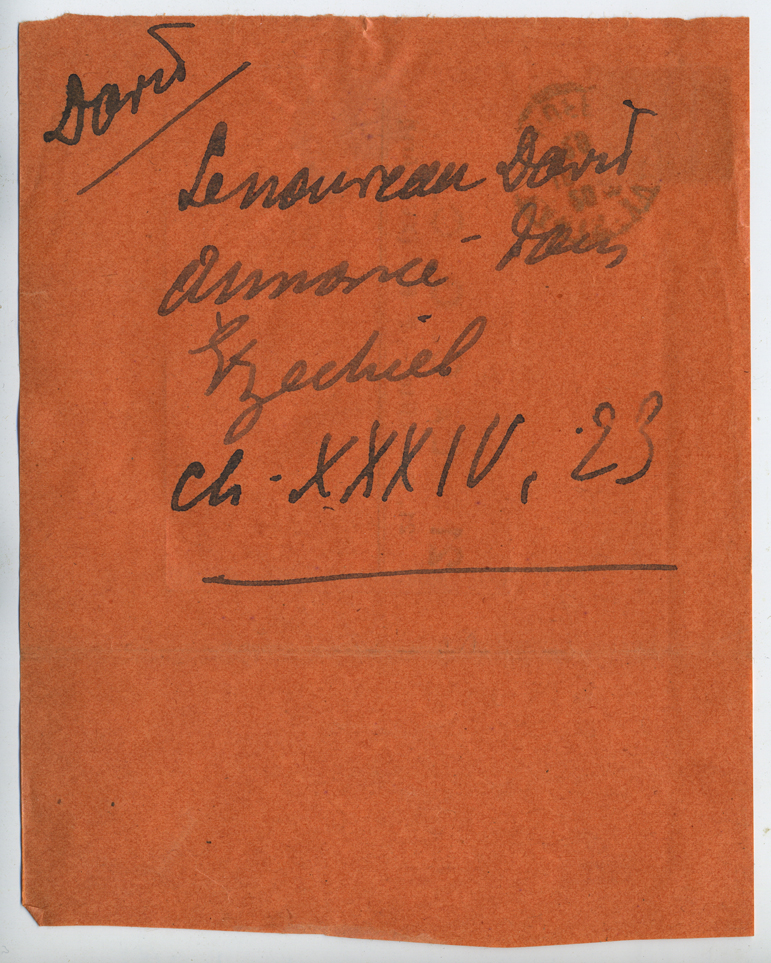 David
Le nouveau David
annoncé dans
Ezechiel
ch. XXXIV, 23